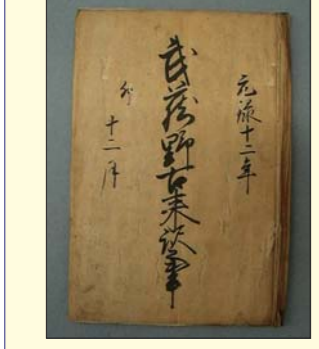 元禄十二年
武蔵野古来
卯
十二月